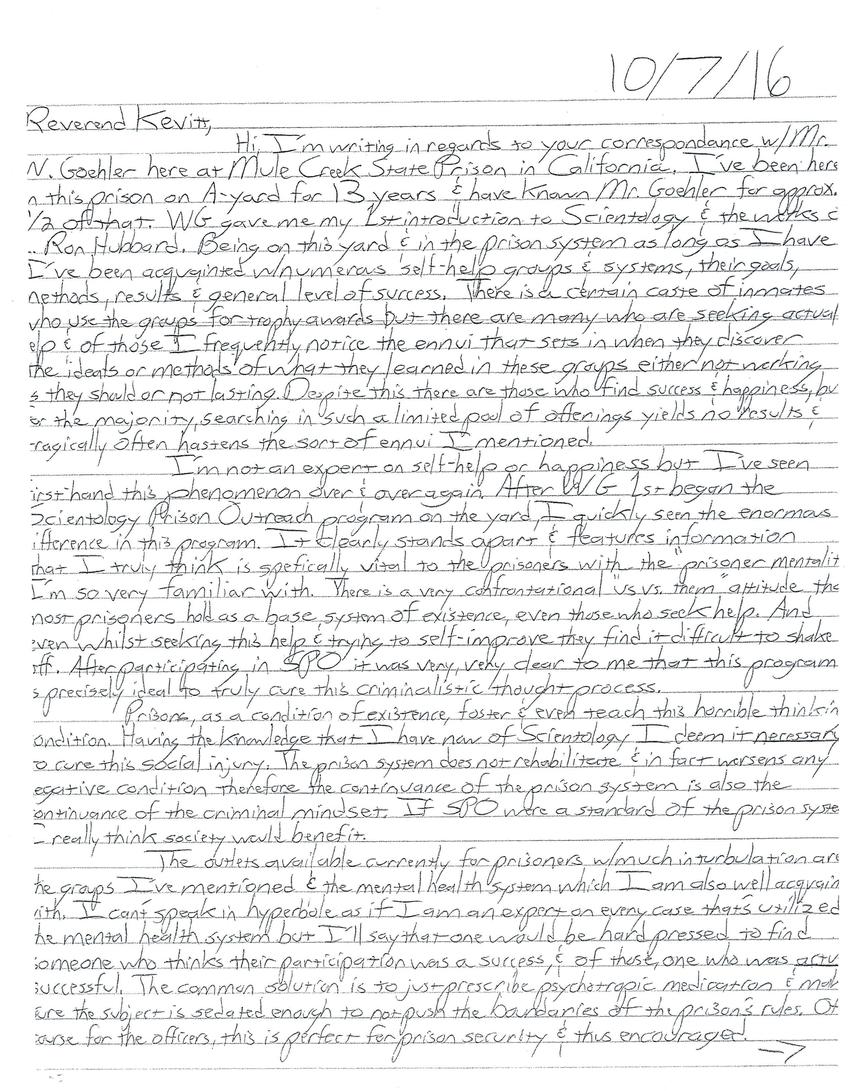 10/7/16
Reverend Kevitt,
Hi, I'm writing in regards to your correspondance w/Mr.
N. Goehler here at Mule Creek State Prison in California. I've been here
n this prison on A-yard for 13 years & have known Mr. Goehler for approx.
1/2 of that. WG gave me my 1st introduction to Scientology & the works o
.. Ron Hubbard. Being on this yard & in the prison system as long as I have
I've been acquainted w/numerous self-help groups & systems, their goals,
nethods, results & general level of success. There is a certain caste of inmates
who use the groups for trophy awards but there are many who are seeking actual
elp & of those I frequently notice the ennui that sets in when they discover
the ideals or methods of what they learned in these groups either not working
s they should or not lasting. Despite this there are those who find success & happiness, bu
or the majority, searching in such a limited pool of offerings yields no results &
ragically often hastens the sort of ennui I mentioned.
I'm not an expert on self-help or happiness but I've seen
irst hand this phenomenon over & over again. After WG 1st began the
Scientology Prison Outreach program on the yard, I quickly seen the enormous
ifference in this program. It clearly stands apart & features information
that I truly think is spefically vital to the prisoners with the "prisoner mentalit
I'm so very familiar with. There is a very confrontational "us vs. them" attitude tha
most prisoners hold as a base system of existence, even those who seek help. And
even whilst seeking this help & trying to self-improve they find it difficult to shake
off. After participating in SPO it was very, very clear to me that this program
s precisely ideal to truly cure this criminalistic thought process.
Prisons, as a condition of existence, foster & even teach this horrible thinkin
ondition. Having the knowledge that I have now of Scientology I deem it necessary
o cure this social injury. The prison system does not rehabilitate & in fact worsens any
egative condition therefore the continuance of the prison system is also the
ontinuance of the criminal mindset. If SPO were a standard of the prison syste
I really think society would benefit.
The outlets available currently for prisoners w/much inturbulation are
he groups I've mentioned & the mental health system which I am also well acquain
with. I can't speak in hyperbole as if I am an expert on every case that's utilized
he mental health system but I'll say that one would be hard pressed to find
someone who thinks their participation was a success, & of those, one who was actu
successful. The common solution is to just prescribe psychotropic medication & mak
ure the subject is sedated enough to not push the boundaries of the prison's rules. Of
ourse for the officers, this is perfect for prison security & thus encouraged.
→